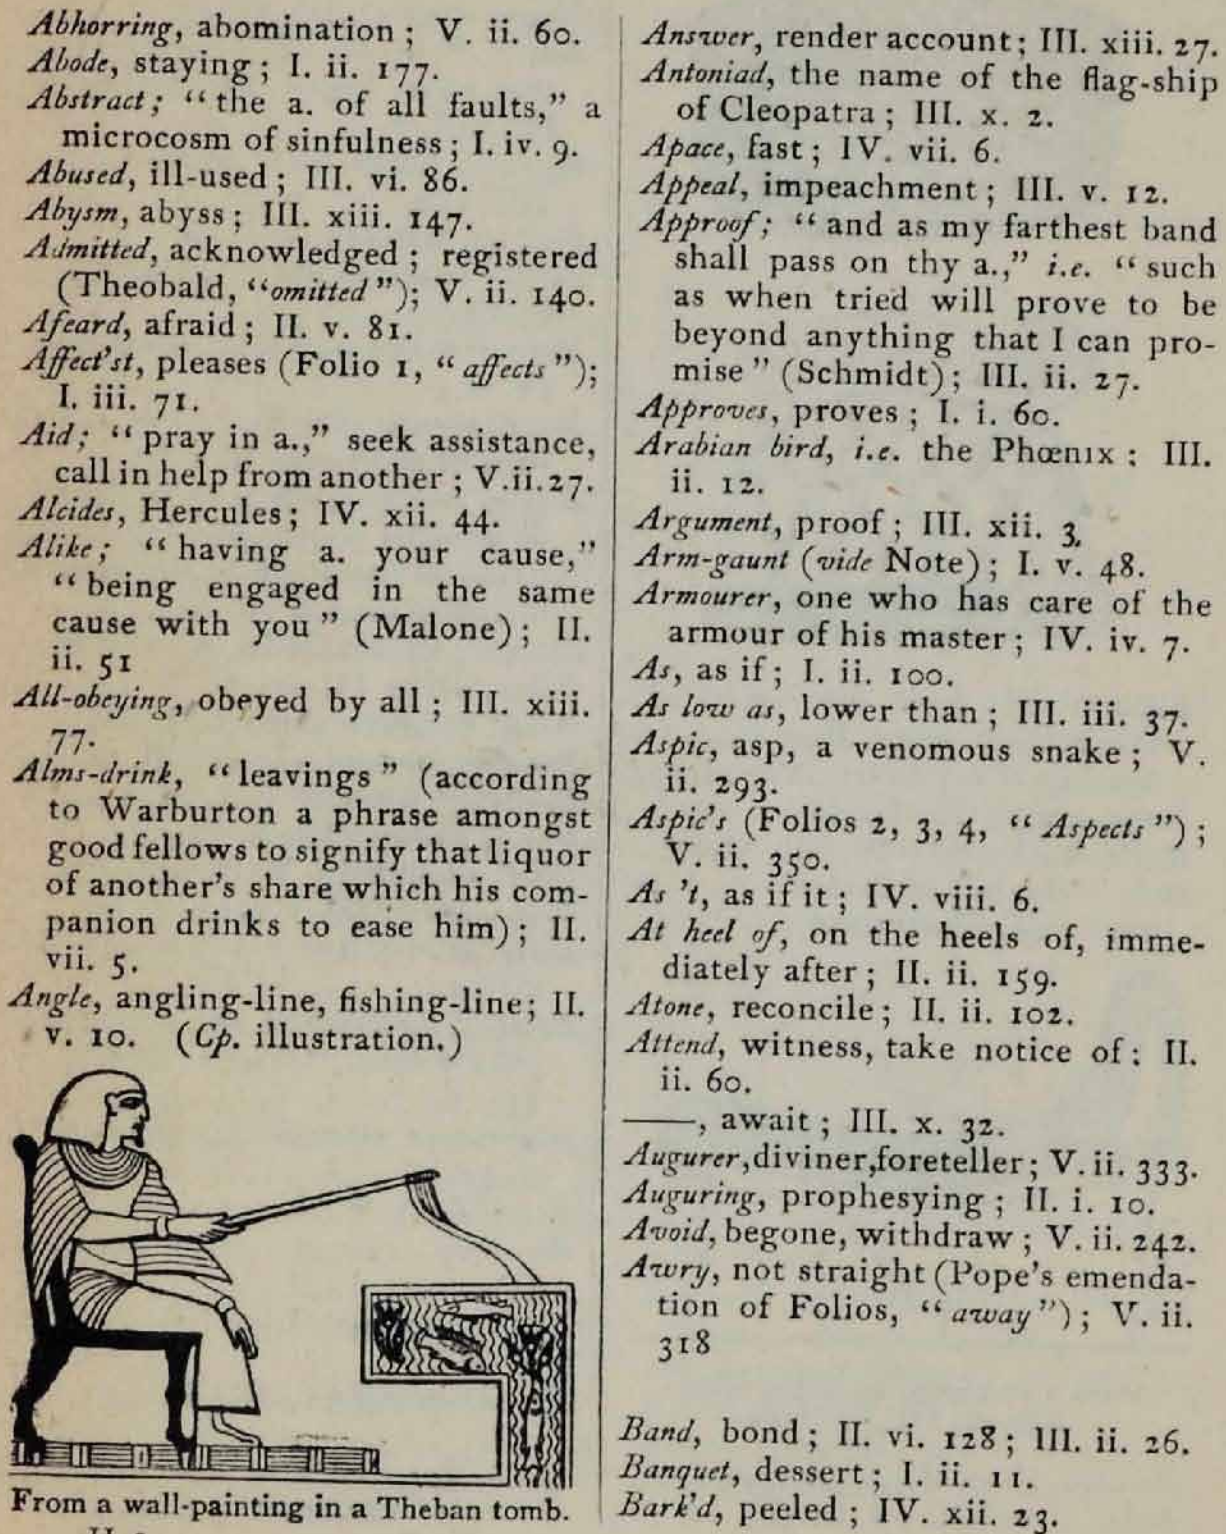 Abhorring, abomination ; V. ii. 60.
Abode, staying ; I. ii. 177.
Abstract ; “ the a. of all faults,” a
microcosm of sinfulness ; I. iv. 9.
Abused, ill-used ; III. vi. 86.
Abysm, abyss ; III. xiii. 147.
Admitted, acknowledged ; registered
(Theobald, “omitted”); V. ii. 140.
Afeard, afraid ; II. v. 81.
Affect'st, pleases (Folio 1, “ affects ”);
I. iii. 71.
Aid; “ pray in a.,” seek assistance,
call in help from another ; V.ii.27.
Alcides, Hercules ; IV. xii. 44.
Alike; “ having a. your cause,”
“ being engaged in the same
cause with you ” (Malone) ; II.
ii. 51
All-obeying, obeyed by all ; III. xiii.
77.
Alms-drink, “ leavings ” (according
to Warburton a phrase amongst
good fellows to signify that liquor
of another's share which his com-
panion drinks to ease him) ; II.
vii. 5.
Angle, angling-line, fishing-line; II.
v. 10. (Cp. illustration.)
From a wall-painting in a Theban tomb.
Answer, render account; III. xiii. 27.
Antoniad, the name of the flag-ship
of Cleopatra ; III. x. 2.
Apace, fast ; IV. vii. 6.
Appeal, impeachment ; III. v. 12.
Approof; “ and as my farthest band
shall pass on thy a.,” i.e. “ such
as when tried will prove to be
beyond anything that I can pro-
mise ” (Schmidt) ; III. ii. 27.
Approves, proves ; I. i. 60.
Arabian bird, i.e. the Phœnix : III.
ii. 12.
Argument, proof ; III. xii. 3.
Arm-gaunt (vide Note) ; I. v. 48.
Armourer, one who has care of the
armour of his master ; IV. iv. 7.
As, as if ; I. ii. 100.
As low as, lower than ; III. iii. 37.
Aspic, asp, a venomous snake ; V.
ii. 293.
Aspic's (Folios 2, 3, 4, “ Aspects ”) ;
V. ii. 350.
As 't, as if it ; IV. viii. 6.
At heel of, on the heels of, imme-
diately after ; II. ii. 159.
Atone, reconcile ; II. ii. 102.
Attend, witness, take notice of : II.
ii. 60.
——, await ; III. x. 32.
Augurer,diviner,foreteller ; V. ii. 333.
Auguring, prophesying ; II. i. 10.
Avoid, begone, withdraw ; V. ii. 242.
Awry, not straight (Pope's emenda-
tion of Folios, “ away”) ; V. ii.
318
Band, bond ; II. vi. 128 ; III. ii. 26.
Banquet, dessert ; I. ii. 11.
Bark'd, peeled ; IV. xii. 23.